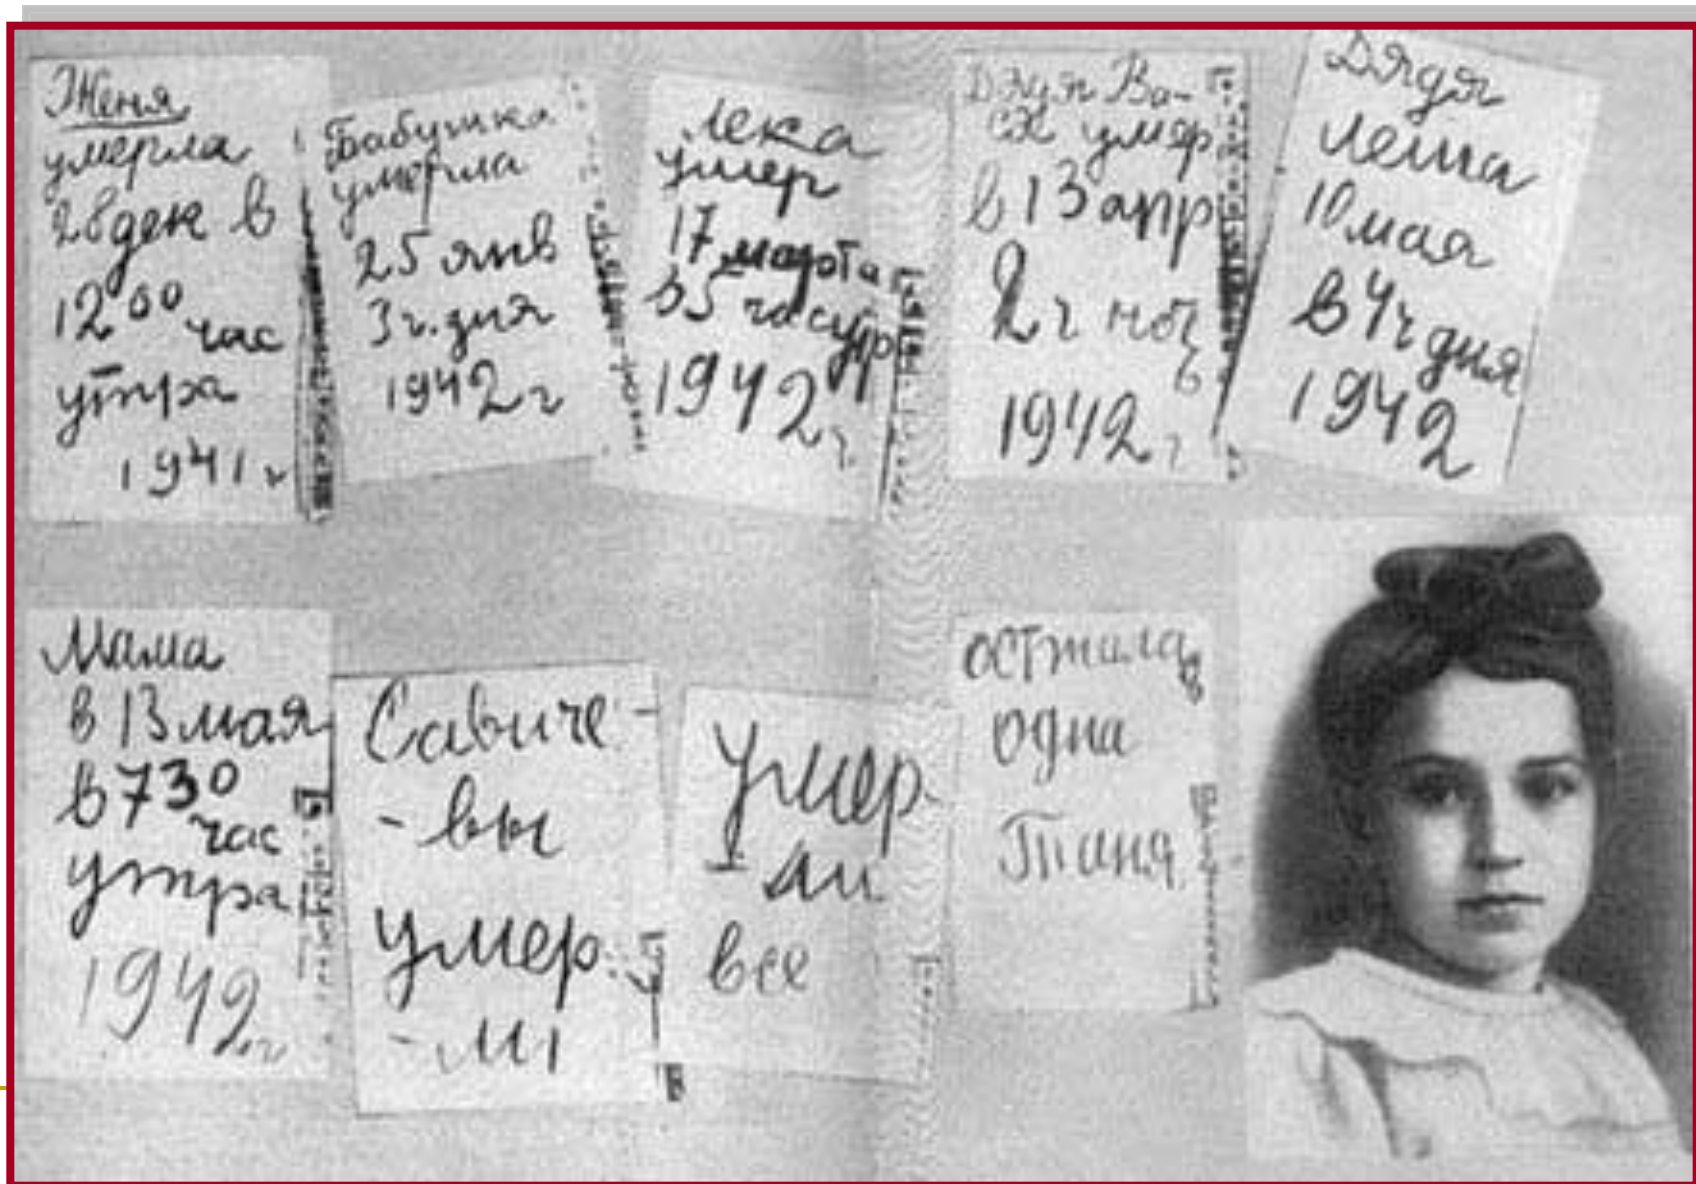 Женя
умерла
28 дек в
12 00 час
утра
1941 г
Бабушка
умерла
25 янв
3 ч. дня
1942 г
Лека
умер
17 марта
в 5 час утр
1942 г.
Дядя Ва-
ся умер
в 13 апр
2 ч ноч
ь
1942 г
Дядя
Леша
10 мая
в 4 ч дня
1942
Мама
в 13 мая
в 7 30
час
утра
1942 г
Савиче-
-вы
умер
-ли
Умер-
-ли
все
Осталась
одна
Таня